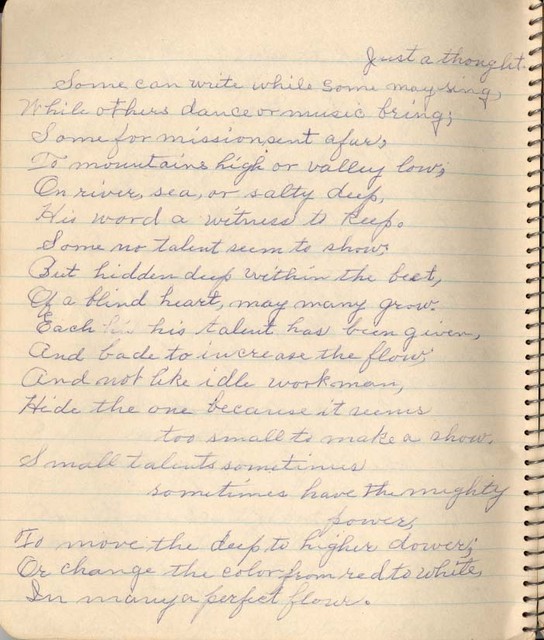 Just a thought.
Some can write while some may sing,
While others dance or music bring;
Some for mission sent afar,
To mountains high or valley low;
On river, sea, or salty deep,
His word a witness to keep.
Some no talent seem to show;
But hidden deep within the
Of a blind heart, may many grow.
Each his talent has been given,
And bade to increase the flow;
And not like idle workman,
Hide the one because it seems
too small to make a show.
Small talents sometimes
sometimes have the mighty
power,
To move the deep to higher dower;
Or change the color from red to white,
In many a perfect flower.